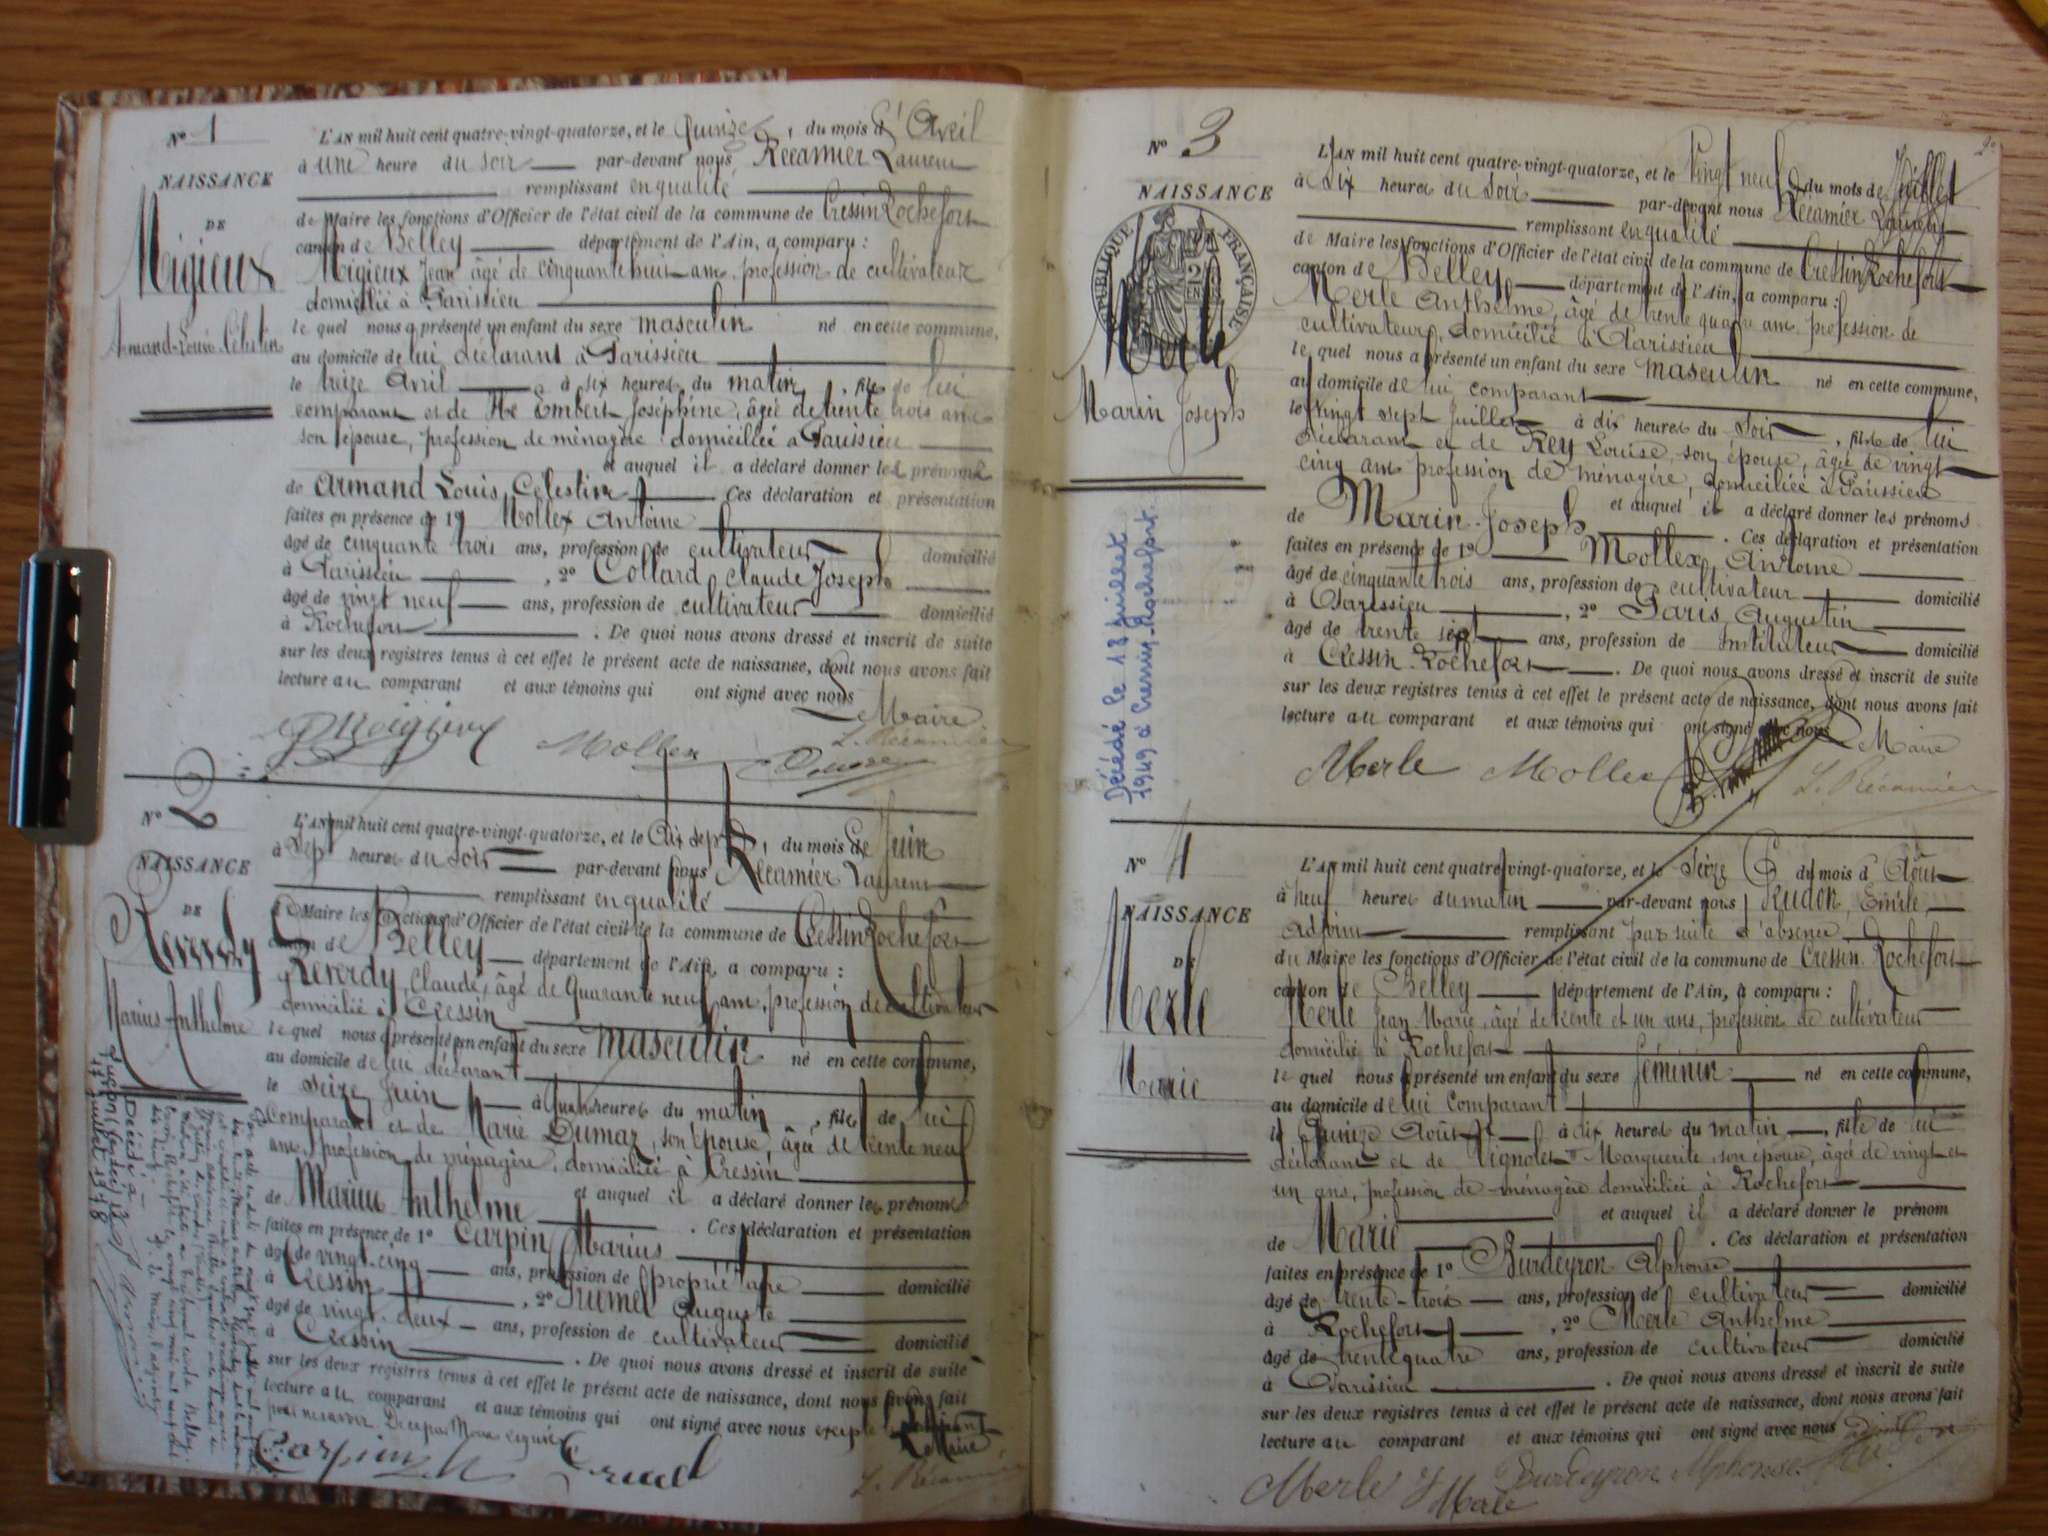 N° 1
NAISSANCE
DE
Migieux
Armand-Louis-Célestin
L'AN mil huit cent quatre-vingt-quatorze, et le Quinze, du mois d'Avril
à une heure du soir par-devant nous Récamier Laurent
remplissant en qualité
de Maire les fonctions d'Officier de l'état civil de la commune de Cressin Rochefort
canton de Belley département de l'Ain, a comparu :
Migieux Jean âgé de cinquante huit ans profession de cultivateur
domicilié à Parissieu
le quel nous a présenté un enfant du sexe masculin né en cette commune,
au domicile de lui déclarant à Parissieu
le treize Avril à six heures du matin, fils de lui
comparant et de Embert Joséphine, âgée de trente trois ans
son épouse, profession de ménagère domiciliée à Parissieu
et auquel il a déclaré donner les prénoms
de Armand Louis Célestin Ces déclaration et présentation
faites en présence de 1° Mollex Antoine
âgé de cinquante trois ans, profession de cultivateur domicilié
à Parissieu, 2° Collard Claude Joseph
âgé de vingt neuf ans, profession de cultivateur domicilié
à Rochefort. De quoi nous avons dressé et inscrit de suite
sur les deux registres tenus à cet effet le présent acte de naissance, dont nous avons fait
lecture au comparant et aux témoins qui ont signé avec nous
Le Maire
Migieux Mollex L. Récamier
N° 2
NAISSANCE
DE
Reverdy
Marius Anthelme
L'AN mil huit cent quatre-vingt-quatorze, et le dix sept, du mois de Juin
à sept heures du soir par-devant nous Récamier Laurent
remplissant en qualité
de Maire les fonctions d'Officier de l'état civil de la commune de Cressin Rochefort
canton de Belley département de l'Ain, a comparu :
Reverdy Claude, âgé de Quarante neuf ans, profession de cultivateur
domicilié à Cressin
le quel nous a présenté un enfant du sexe masculin né en cette commune,
au domicile de lui déclarant
le seize Juin à quatre heures du matin, fils de lui
comparant et de Marie Dumaz, son épouse, âgée de trente neuf
ans, profession de ménagère, domiciliée à Cressin
et auquel il a déclaré donner les prénoms
de Marius Anthelme. Ces déclaration et présentation
faites en présence de 1° Carpin Marius
âgé de vingt-cinq ans, profession de propriétaire domicilié
à Cressin, 2° Auguste
âgé de vingt-deux ans, profession de cultivateur domicilié
à Cressin. De quoi nous avons dressé et inscrit de suite
sur les deux registres tenus à cet effet le présent acte de naissance, dont nous avons fait
lecture au comparant et aux témoins qui ont signé avec nous excepté le comparant
Le Maire
Carpin M
L. Récamier
Décédé à
N° 3
NAISSANCE
RÉPUBLIQUE FRANÇAISE
Merle
Marin Joseph
Décédé le 18 juillet
1949 à Cressin-Rochefort.
2°
L'AN mil huit cent quatre-vingt-quatorze, et le Vingt neuf du mois de Juillet
à six heures du soir par-devant nous Récamier Laurent
remplissant en qualité
de Maire les fonctions d'Officier de l'état civil de la commune de Cressin Rochefort
canton de Belley département de l'Ain, a comparu :
Merle Anthelme, âgé de trente quatre ans profession de
cultivateur, domicilié à Parissieu
le quel nous a présenté un enfant du sexe masculin né en cette commune,
au domicile de lui comparant
le vingt sept Juillet à dix heures du soir, fils de lui
déclarant et de Rey Louise, son épouse, âgée de vingt
cinq ans profession de ménagère, domiciliée à Parissieu
et auquel il a déclaré donner les prénoms
de Marin-Joseph. Ces déclaration et présentation
faites en présence de 1° Mollex Antoine
âgé de cinquante trois ans, profession de cultivateur domicilié
à Parissieu, 2° Paris Augustin
âgé de trente sept ans, profession de instituteur domicilié
à Cressin-Rochefort. De quoi nous avons dressé et inscrit de suite
sur les deux registres tenus à cet effet le présent acte de naissance, dont nous avons fait
lecture au comparant et aux témoins qui ont signé avec nous
Le Maire
Merle Mollex L. Récamier
N° 4
NAISSANCE
DE
Merle
Marie
L'AN mil huit cent quatre-vingt-quatorze, et le seize du mois d'Août
à neuf heures du matin par-devant nous Rudon Emile,
Adjoint remplissant par suite d'absence
du Maire les fonctions d'Officier de l'état civil de la commune de Cressin-Rochefort
canton de Belley département de l'Ain, a comparu :
Merle Jean Marie, âgé de trente et un ans, profession de cultivateur
domicilié à Rochefort
le quel nous a présenté un enfant du sexe féminin né en cette commune,
au domicile de lui comparant
le Quinze Août à dix heures du matin, fille de lui
déclarant et de Vignolet Marguerite son épouse, âgée de vingt et
un ans, profession de ménagère domiciliée à Rochefort
et auquel il a déclaré donner le prénom
de Marie. Ces déclaration et présentation
faites en présence de 1° Burdeyron Alphonse
âgé de trente-trois ans, profession de cultivateur domicilié
à Rochefort, 2° Merle Anthelme
âgé de trente quatre ans, profession de cultivateur domicilié
à Parissieu. De quoi nous avons dressé et inscrit de suite
sur les deux registres tenus à cet effet le présent acte de naissance, dont nous avons fait
lecture au comparant et aux témoins qui ont signé avec nous
Merle J Burdeyron Alphonse
Merle